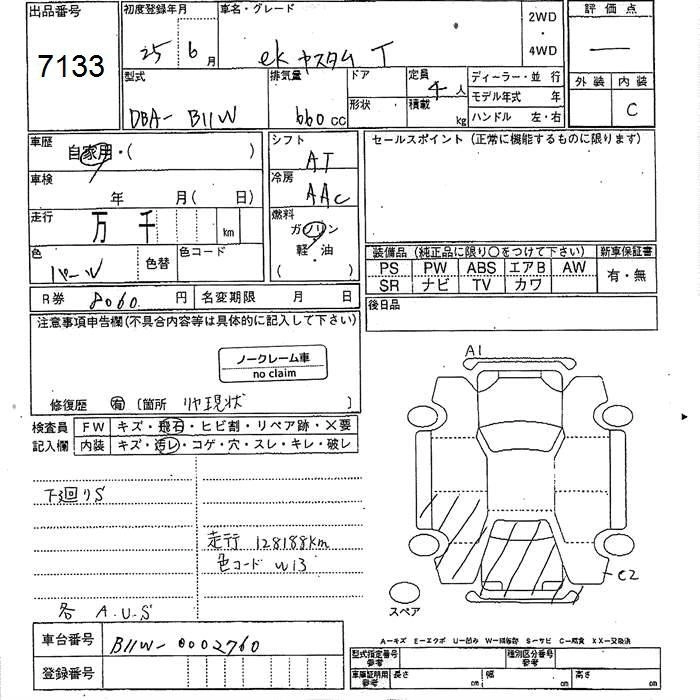 出品番号
7133
初度登録年月
25年 6月
車名・グレード
ek カスタム T
2WD
・
4WD
評価点
—
外装 内装
C
型式
DBA- B11W
排気量
660 cc
ドア
形状
定員
4人
積載
kg
ディーラー・並行
モデル年式 年
ハンドル 左・右
車歴
自家用・( )
車検
年 月( 日)
走行
万 千 km
色
パール
色替
色コード
シフト
AT
冷房
AAC
燃料
ガソリン
軽・油
( )
セールスポイント (正常に機能するものに限ります)
装備品 (純正品に限り〇をつけて下さい)
PS PW ABS エアB AW
SR ナビ TV カワ
新車保証書
有・無
R券 8060 円
名変期限 月 日
後日品
注意事項申告欄(不具合内容等は具体的に記入して下さい)
ノークレーム車
no claim
修復歴 有 〔箇所 リヤ現状 〕
検査員 FW キズ・飛石・ヒビ割・リペア跡・X要
記入欄 内装 キズ・汚レ・コゲ・穴・スレ・キレ・破レ
下廻りS
走行 128188km
色コード W13
各 A.U.S
A1
C2
スペア
A-キズ E-エクボ U-凹み W-補修跡 S-サビ C-腐食 XX-交換済
車台番号
B11W-0002760
登録番号
型式指定番号
参考
種別区分番号
参考
車庫証明用
参考
長さ cm 幅 cm 高さ cm